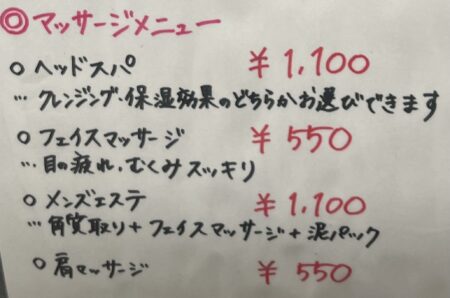 ◎マッサージメニュー
○ヘッドスパ ¥1,100
…クレンジング・保湿効果のどちらかお選びできます
○フェイスマッサージ ¥550
…目の疲れ、むくみスッキリ
○メンズエステ ¥1,100
…角質取り+フェイスマッサージ+泥パック
○肩マッサージ ¥550